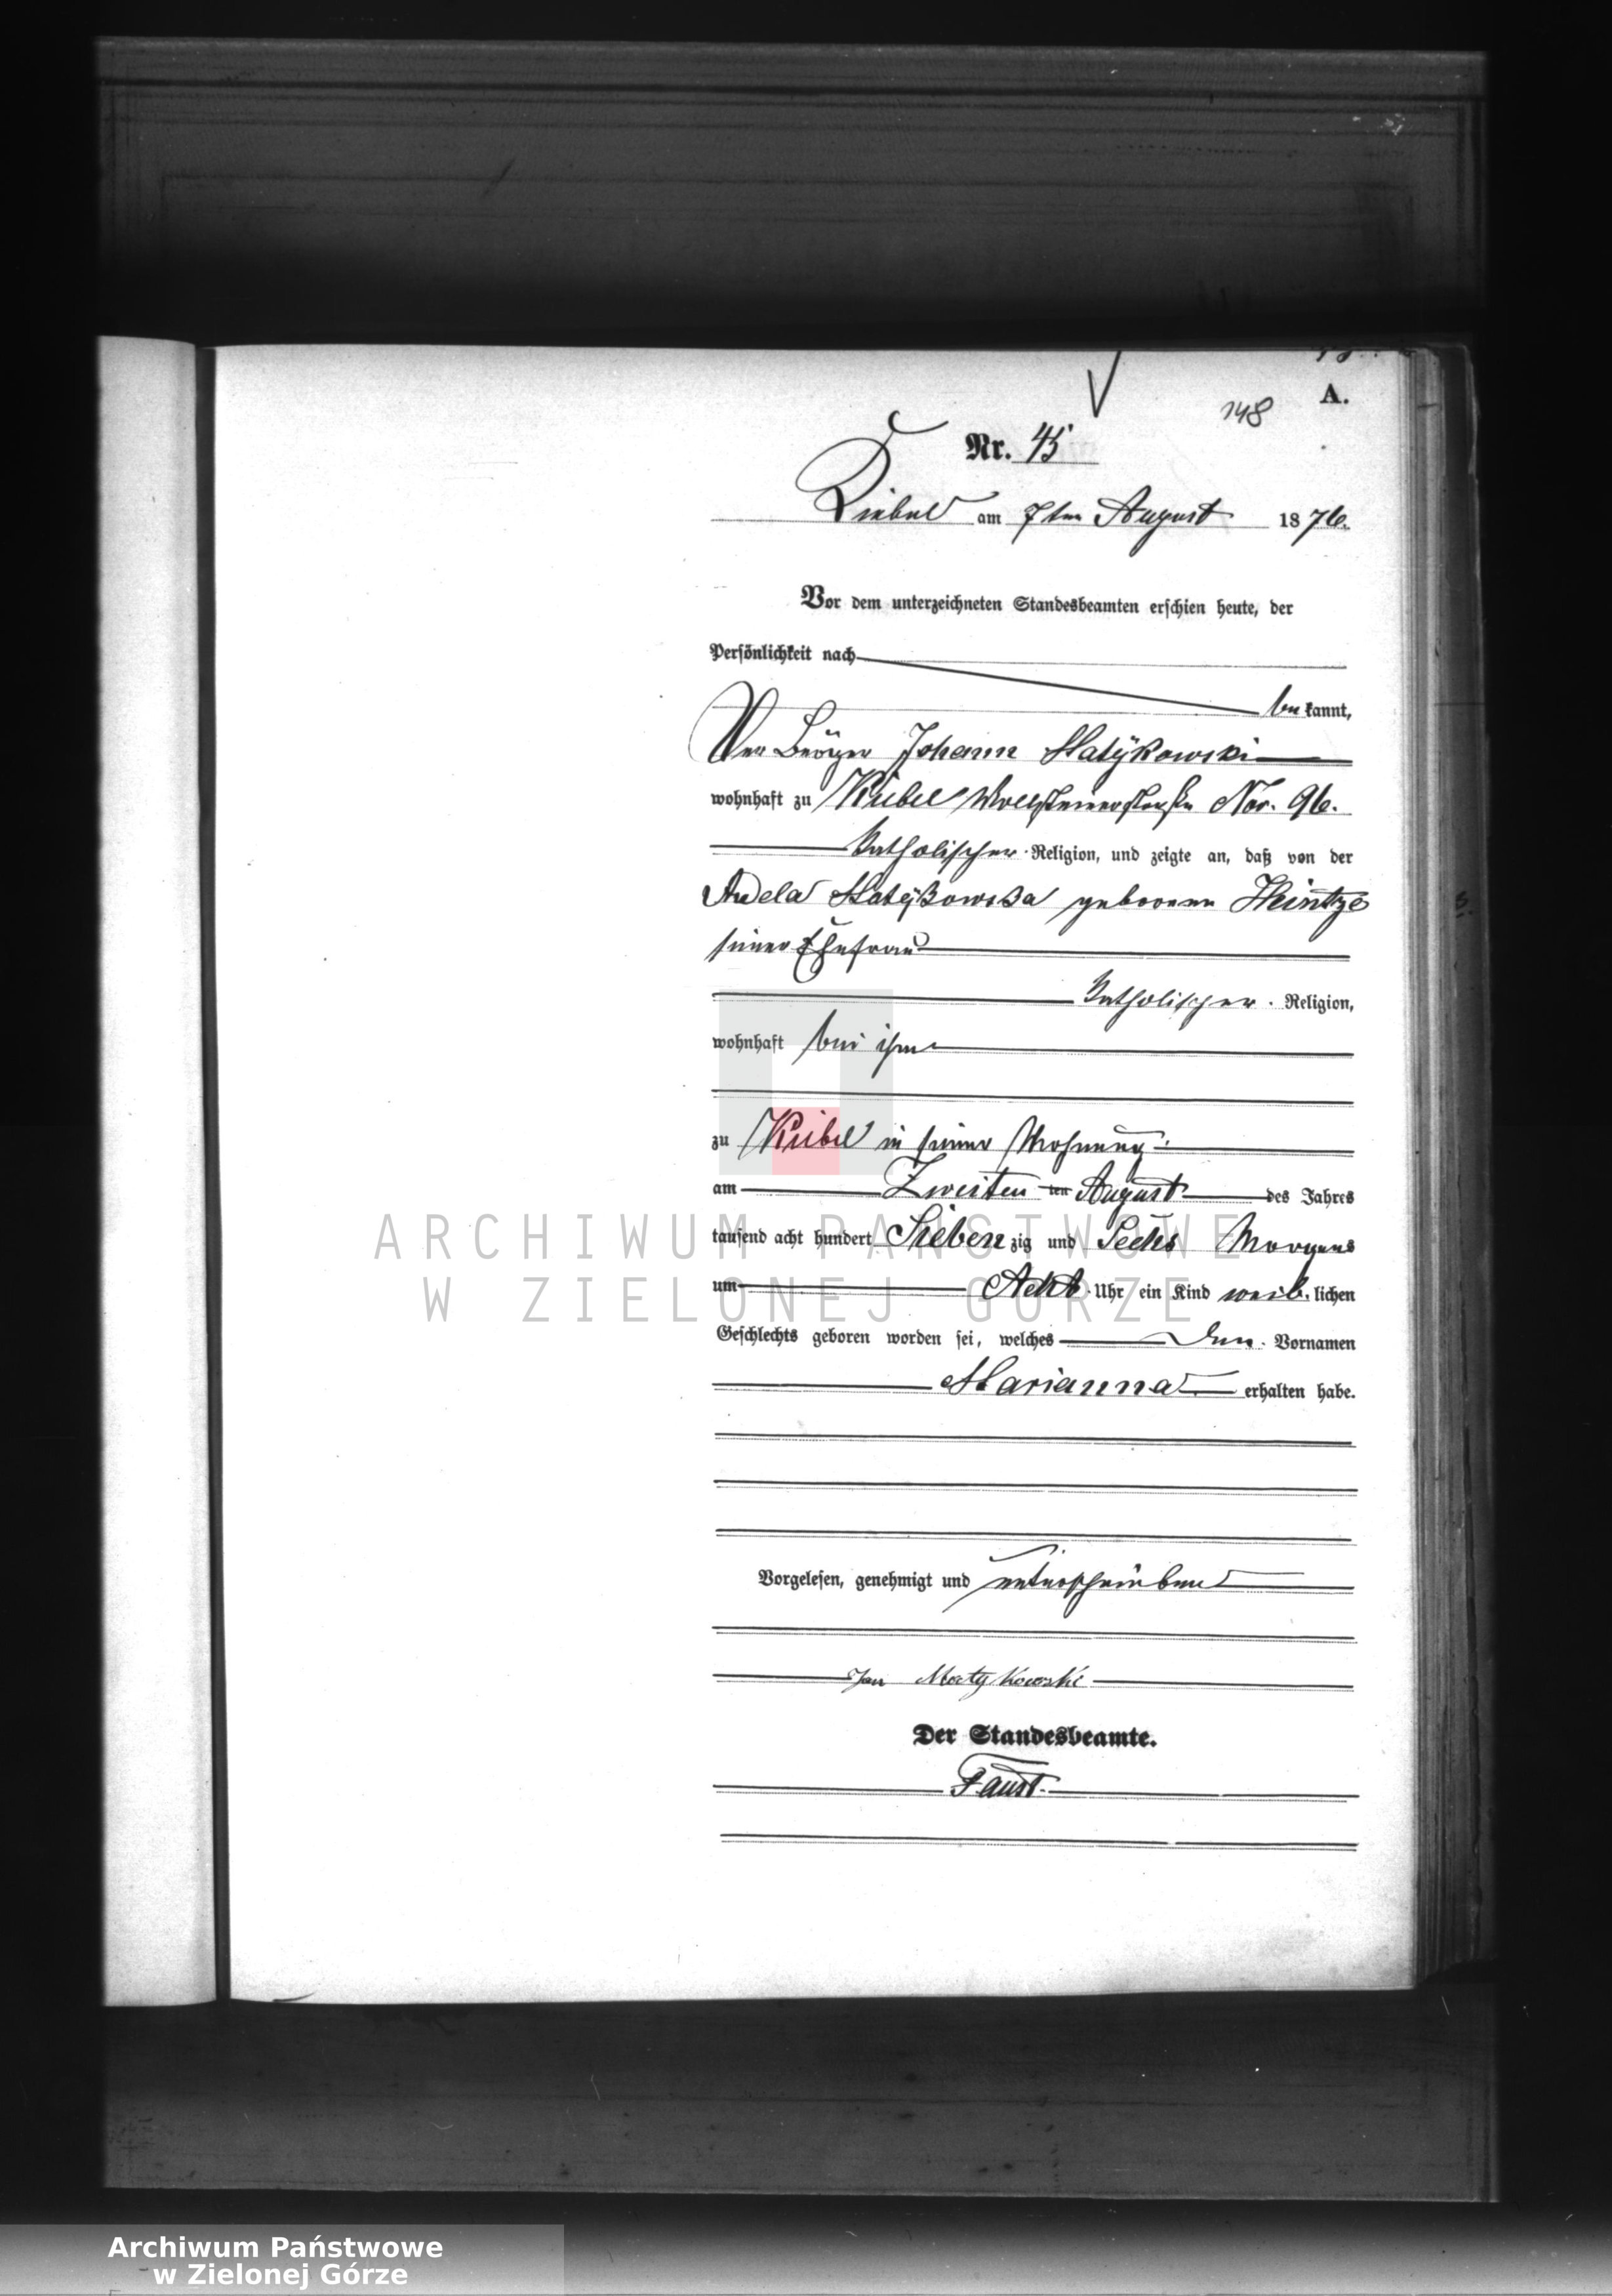 A.
148
Nr. 45
Kiebel am 7ten August 1876.
Vor dem unterzeichneten Standesbeamten erschien heute, der
Persönlichkeit nach
bekannt,
Der Bürger Johann Matÿkowski
wohnhaft zu Kiebel Wollsteinerstraße Nor. 96.
katholischer Religion, und zeigte an, daß von der
Matÿkowska geborenen Heintze
seiner Ehefrau
katholischer Religion,
wohnhaft bei ihm
zu Kiebel in seiner Wohnung
am Zweiten ten August des Jahres
tausend acht hundert Siebenzig und Sechs Morgens
um Acht Uhr ein Kind weiblichen
Geschlechts geboren worden sei, welches den Vornamen
Marianna erhalten habe.
Vorgelesen, genehmigt und unterschrieben
Jan Matykowski
Der Standesbeamte.
Faust
ARCHIWUM PAŃSTWOWE
W ZIELONEJ GÓRZE
Archiwum Państwowe
w Zielonej Górze